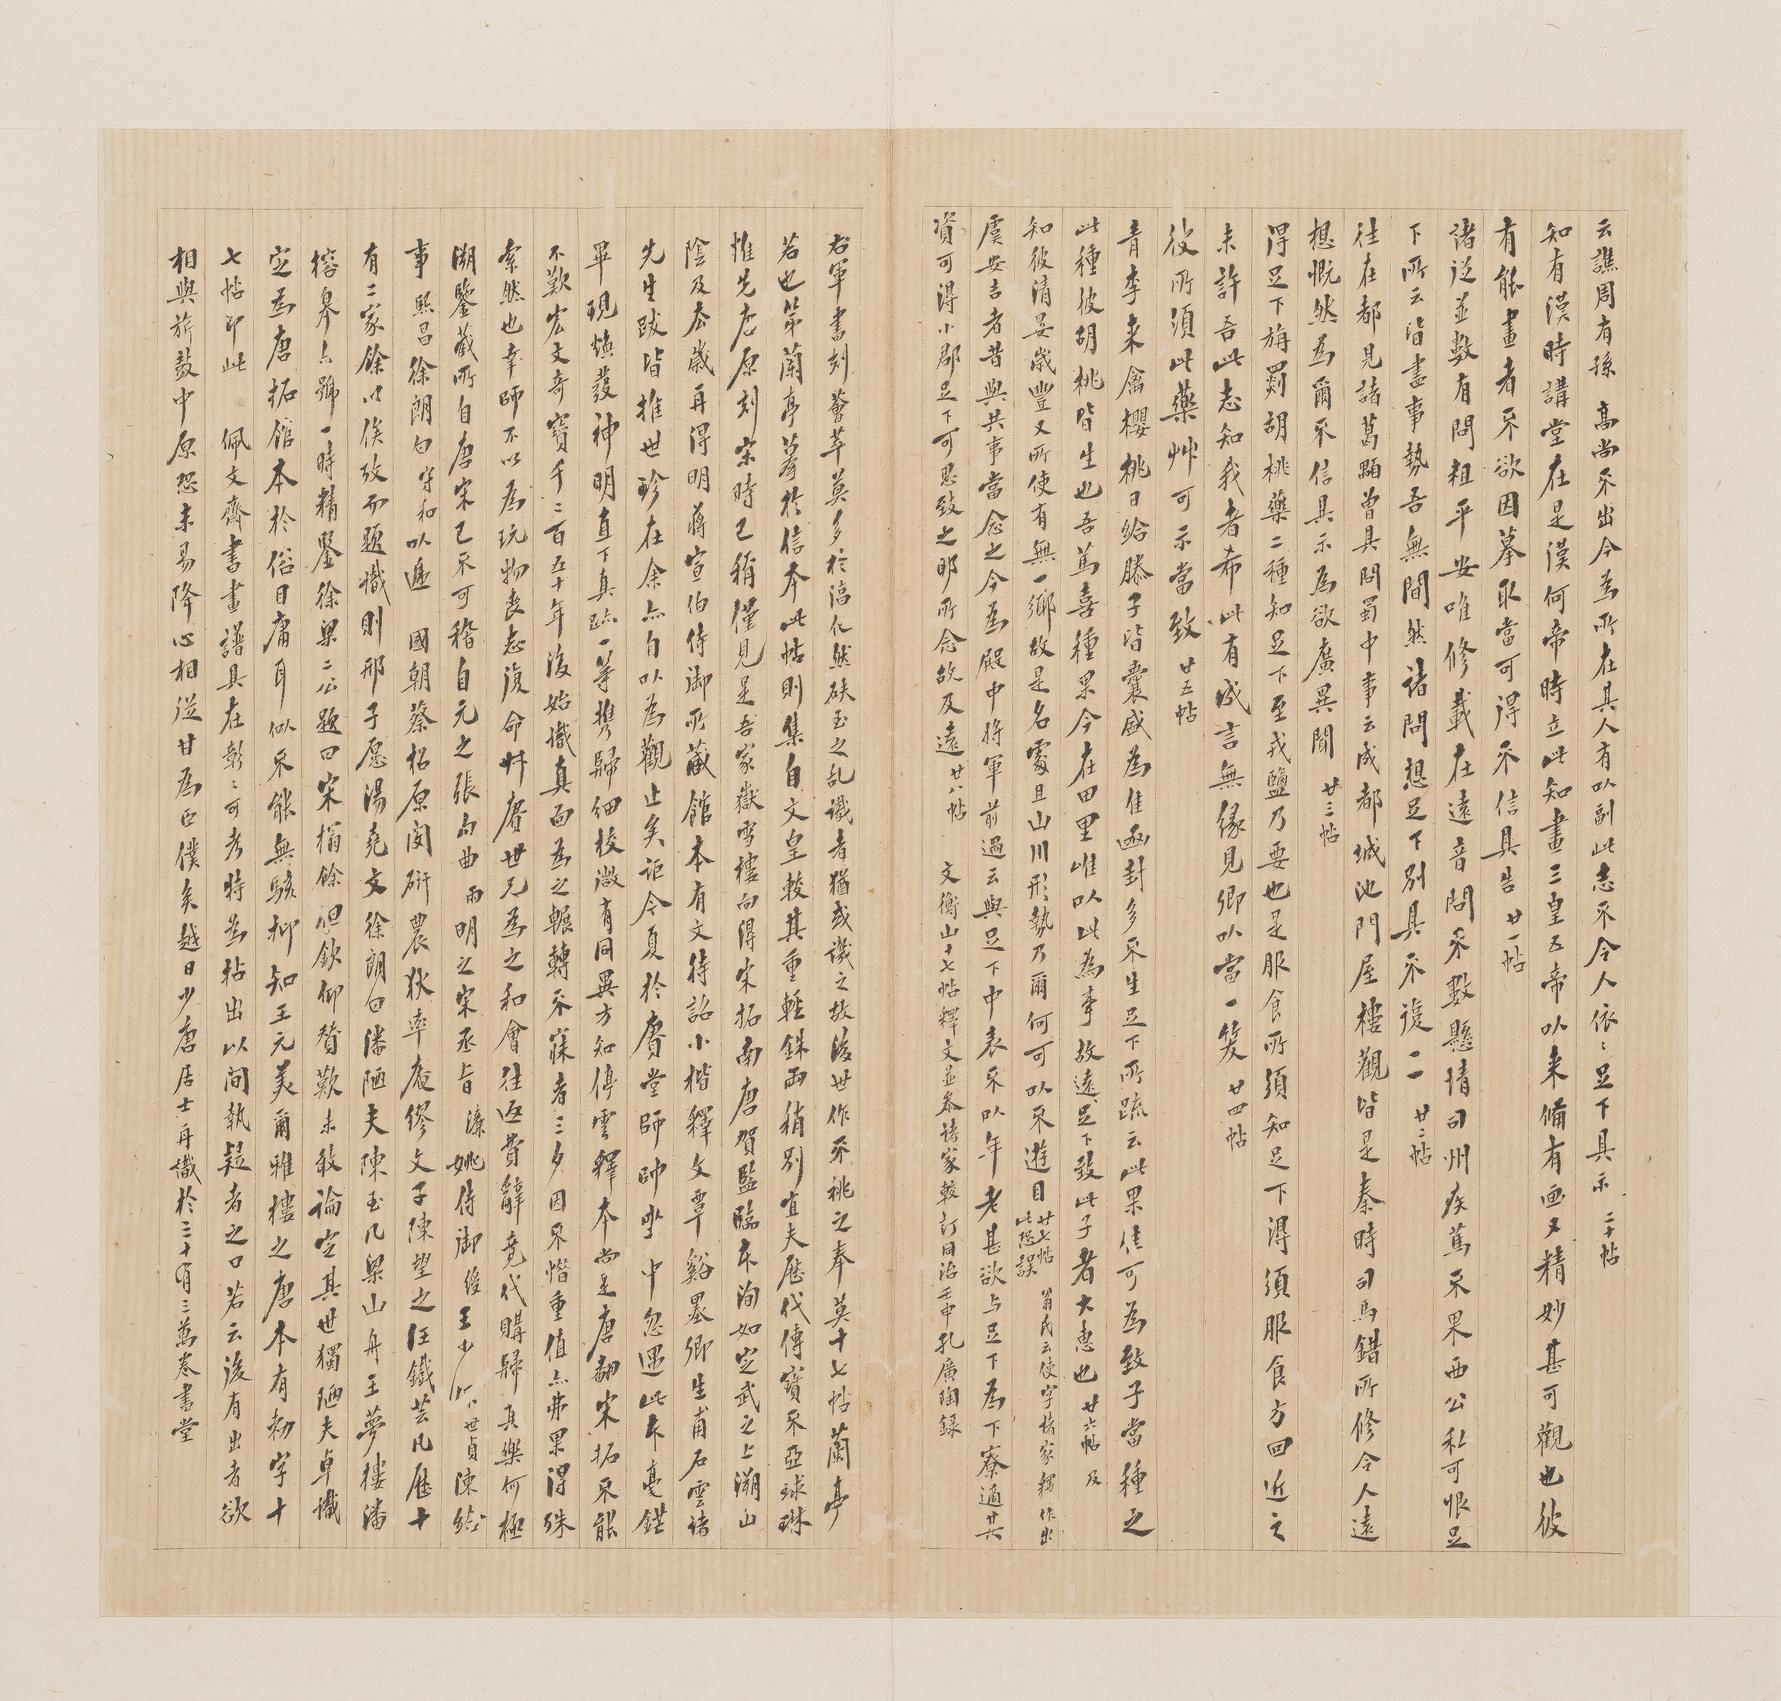 云譙周有孫　高尚不出今為所在其人有以副此志不令人依〻足下具示　二十帖
知有漢時講堂在是漢何帝時立此知畫三皇五帝以来備有画又精妙甚可觀也彼
有能畫者不欲因摹取當可得不信具告　廿一帖
諸從並數有問粗平安唯修載在遠音問不數懸情司州疾篤不果西公私可恨足
下所云皆盡事勢吾無間然諸問想足下别具不復一一　廿二帖
往在都見諸葛顒曾具問蜀中事云成都城池門屋樓觀皆是秦時司馬錯所修令人遠
想慨然為爾不信具示為欲廣異聞　廿三帖
得足下旃罽胡桃藥二種知足下至戎鹽乃要也是服食所須知足下得須服食方回近之
未許吾此志知我者希此有成言無緣見卿以當一笑　廿四帖
彼所須此藥艸可示當致　廿五帖
青李来禽櫻桃日給滕子皆囊盛為佳函封多不生足下所疏云此果佳可為致子當種之
此種彼胡桃皆生也吾篤喜種果今在田里唯以此為事故遠足下致此子者大惠也　廿六帖　及
知彼清晏歲豐又所使有無一鄉故是名處且山川形勢乃爾何可以不遊目　廿七帖　此恐誤　翁氏云使字諸家釋作出
虞安吉者昔與共事當念之今為殿中將軍前過云與足下中表不以年老甚欲与足下為下寮適其
資可得小郡足下可思致之耶所念故及遠　廿八帖　文衡山十七帖釋文並叅諸家較訂同治壬申孔廣陶録
右軍書刻薈萃莫多於淳化然碔玉之乱識者猶或譏之故後世作不祧之奉莫十七帖蘭亭
若也第蘭亭摹於信本此帖則集自文皇較其重輕銖兩稍别宜夫歷代傳寶不亞球琳
惟先唐原刻宋時已稱僅見是吾家嶽雪樓向得宋拓南唐賀監臨本洵如定武之上溯山
陰及本歲再得明蔣宣伯侍御所藏館本有文待詔小楷釋文覃谿墨卿生甫石雲諸
先生跋皆推世珍在余亦自以為觀止矣詎今夏於賡堂師帥坐中忽遇此本亟錯
畢現煥發神明直下真跡一等携歸細校微有同異方知停雲釋本尚是唐翻宋拓不能
不歎宏文奇寶千二百五十年後始識真面為之輾轉不寐者三夕因不惜重值亦弗果得殊
索然也幸師不以為玩物喪志復命卄賡世兄為之和會往返費辭竟代購歸其樂何極
溯鑒藏所自唐宋已不可稽自元之張句曲雨明之宋丞旨濂姚侍御綬王少　世貞陳給
事熙昌徐朗白守和以逮　國朝蔡松原閔研農狄率庵繆文子陳望之汪鐵芸凡歷十
有二家餘以俟攷而題識則邢子愿湯堯文徐朗白潘陋夫陳玉几梁山舟王夢樓潘
榕皋亦號一時精鑒徐梁二公題曰宋搨餘但欽仰贊歎未敢論定其世獨陋夫卓識
定為唐拓館本於俗目庸耳似不能無駭抑知王元美爾雅樓之唐本有勑字十
七帖即此　佩文齋書畫譜具在彰〻可考特為拈出以間執疑者之口若云後有出者欲
相與旂鼓中原恐未易降心相從甘為臣僕矣越日少唐居士再識於三十有三萬卷書堂